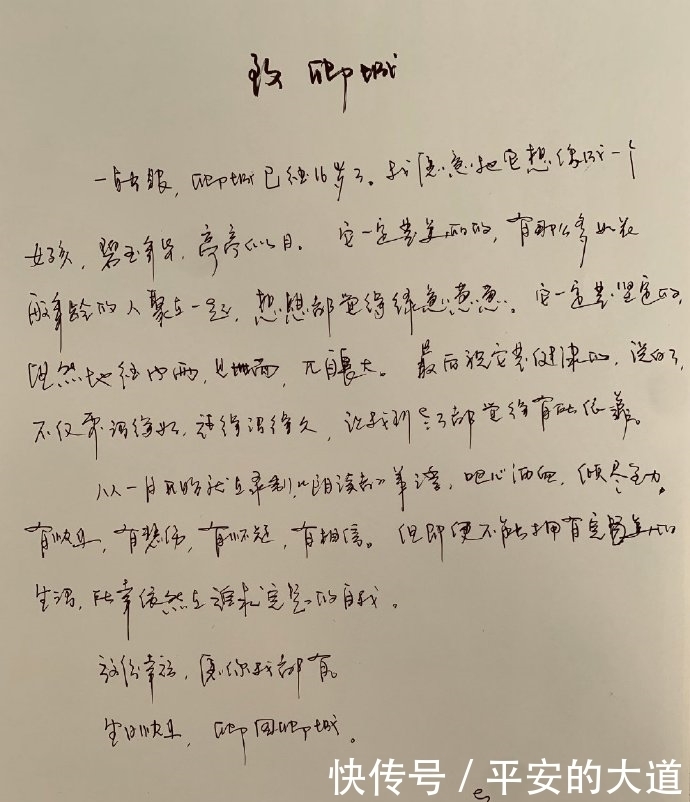 致聊城
一转眼，聊城已经16岁了。我愿意把它想像成一个
女孩，碧玉年华，亭亭似月。它一定是美的，有那么多如花
般年龄的人聚在一起，想想都觉得绿意葱葱。它一定是坚定的，
既然 经 雨，见 面，大。最后祝它是健康的，说白了，
不仅要活得好，还得活得久，让我们 都觉得有所依靠。
从一月开始就在录制《朗读者》第 ，呕心沥血，倾尽全力。
有快乐，有悲伤，有怀疑，有相信。但即便不能拥有完美的
生活，所幸依然在追求完整的自我。
这份幸福，愿你我都有。
生日快乐，聊回聊城。
快传号 / 平安的大道